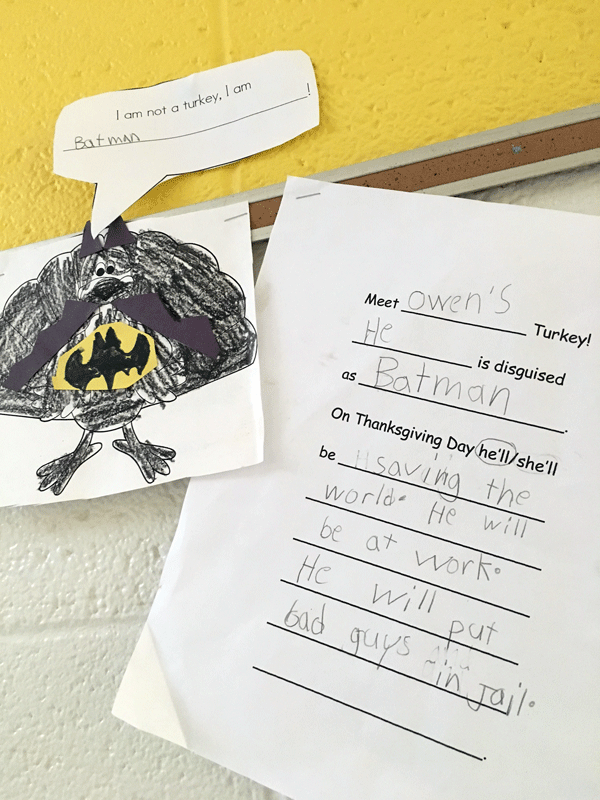 I am not a turkey, I am
Batman!
Meet Owen's Turkey!
He is disguised
as Batman.
On Thanksgiving Day he'll/she'll
be saving the
world. He will
be at work.
He will put
bad guys
in Jail.
.